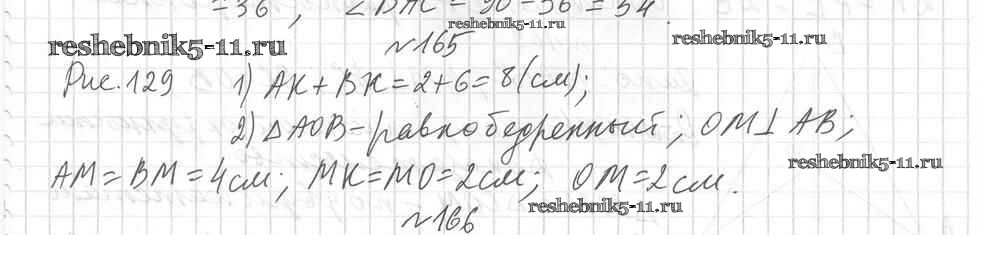 = 36 , ∠BAC = 90 - 36 = 54 .
reshebnik5-11.ru
reshebnik5-11.ru
№165
reshebnik5-11.ru
Рис.129 1) AK + BK = 2 + 6 = 8 (см);
2) △AOB - равнобедренный; OM ⊥ AB;
reshebnik5-11.ru
AM = BM = 4 см; MK = MO = 2 см; OM = 2 см.
reshebnik5-11.ru
№166